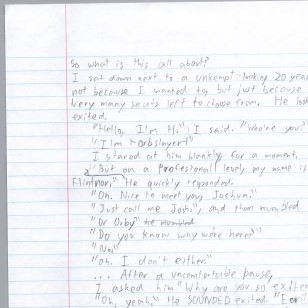 So what is this all about?
I sat down next to a unkempt-looking 20 year
not because I wanted to, but just because
very many seats left to choose from. He loo
exited.
"Hello, I'm H." I said. "Who're you?"
"I'm
I stared at him blankly for a moment.
"But on a Professional level my name is
He quickly responded.
"Oh. Nice to meet you, Joshua."
"Just call me Josh", and then mumbled
"Or Orby" he mumbled
"Do you know why we're here?"
"No,"
"Oh. I don't either."
... After a uncomfortable pause,
I asked him "Why are you so excited
"Oh, yeah." He SOUNDED exited.